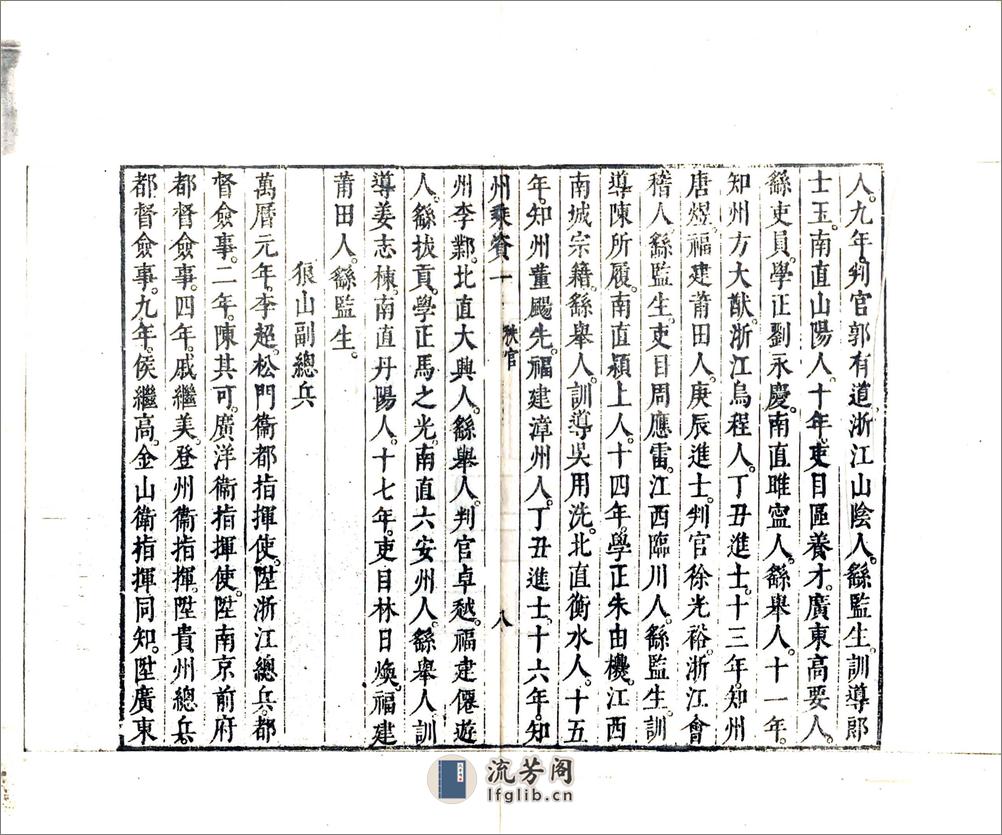 人。九年。判官郭有道。浙江山陰人。繇監生。訓導郎
士玉。南直山陽人。十年。吏目區養才。廣東高要人。
繇吏員。學正劉永慶。南直睢寧人。繇舉人。十一年。
知州方大猷。浙江烏程人。丁丑進士。十三年。知州
唐煜。福建莆田人。庚辰進士。判官徐光裕。浙江會
稽人。繇監生。吏目周應雷。江西臨川人。繇監生。訓
導陳所履。南直潁上人。十四年。學正朱由機。江西
南城宗籍。繇舉人。訓導吳用洗。北直衡水人。十五
年。知州董颺先。福建漳州人。丁丑進士。十六年。知
州乘資一 秩官 八
州李鄴。北直大興人。繇舉人。判官卓愁。福建僊遊
人。繇拔貢。學正馬之光。南直六安州人。繇舉人。訓
導姜志棟。南直丹陽人。十七年。吏目林日煥。福建
莆田人。繇監生。
狼山副總兵
萬曆元年。李超。松門衞都指揮使。陞浙江總兵。都
督僉事。二年。陳其可。廣洋衞指揮使。陞南京前府
都督僉事。四年。戚繼美。登州衞指揮。陞貴州總兵。
都督僉事。九年。侯繼高。金山衞指揮同知。陞廣東
流芳阁
lfglib.cn